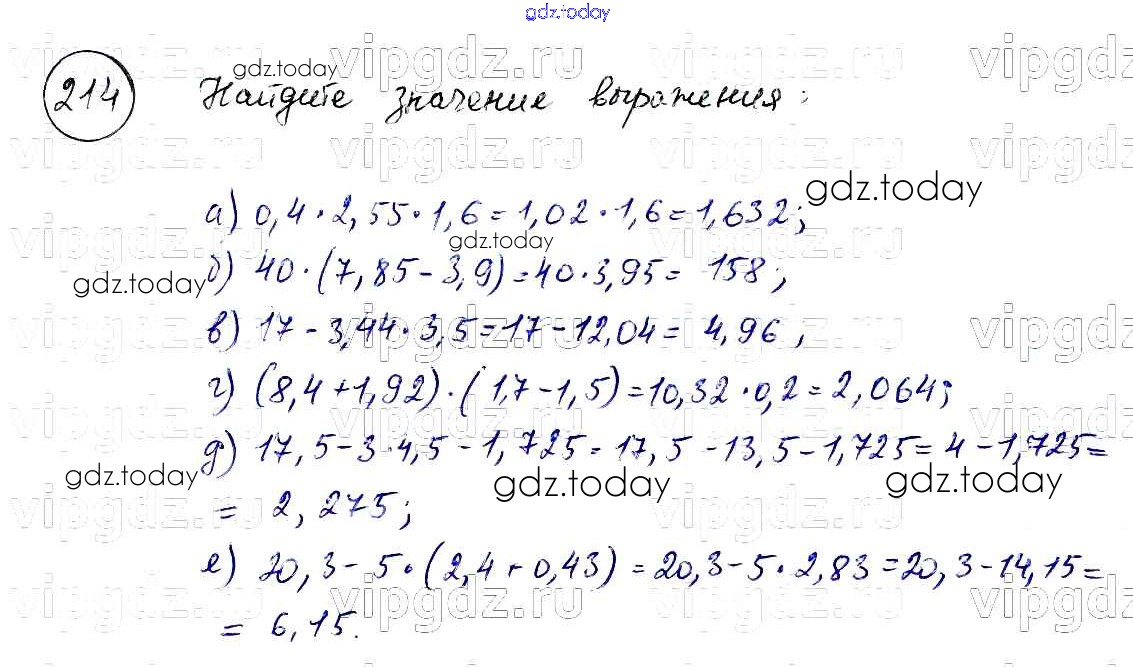 gdz.today
214 Найдите значение выражения:
а) 0,4 · 2,55 · 1,6 = 1,02 · 1,6 = 1,632;
б) 40 · (7,85 - 3,9) = 40 · 3,95 = 158;
в) 17 - 3,44 · 3,5 = 17 - 12,04 = 4,96;
г) (8,4 + 1,92) · (1,7 - 1,5) = 10,32 · 0,2 = 2,064;
д) 17,5 - 3 · 4,5 - 1,725 = 17,5 - 13,5 - 1,725 = 4 - 1,725 =
= 2,275;
е) 20,3 - 5 · (2,4 + 0,43) = 20,3 - 5 · 2,83 = 20,3 - 14,15 =
= 6,15.